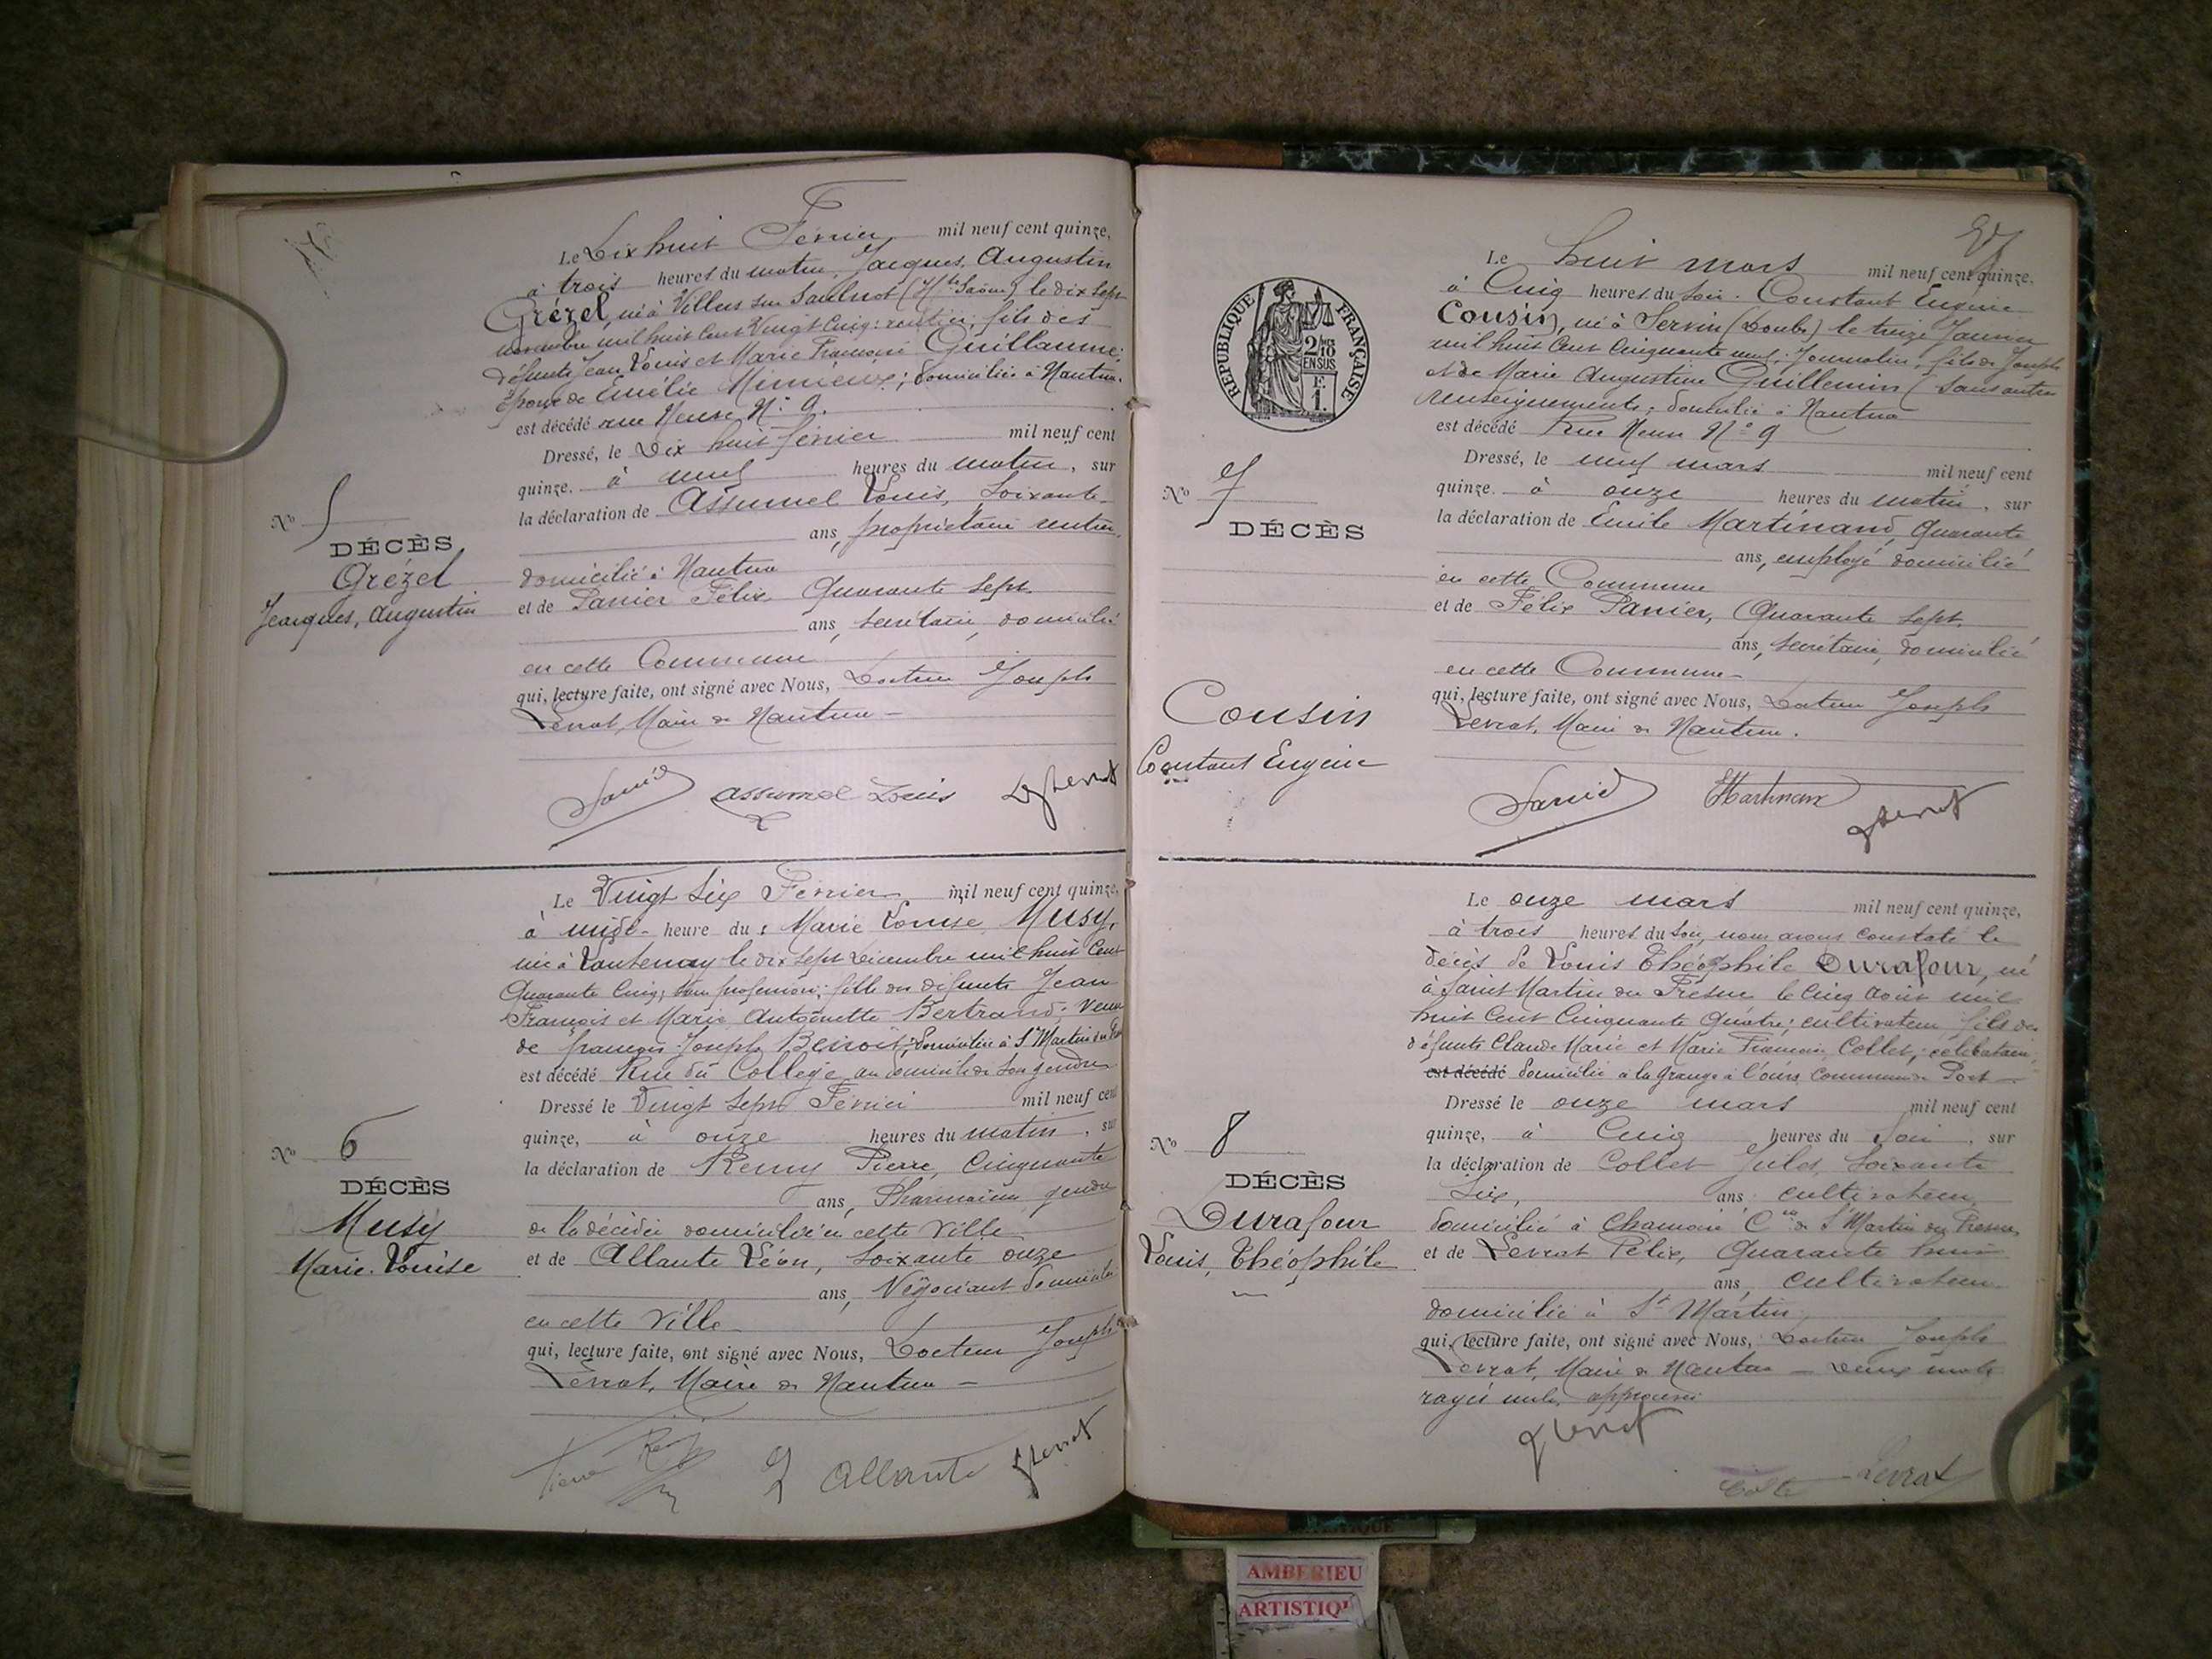 Le Dix huit Février mil neuf cent quinze,
à trois heures du matin, Jacques, Augustin
Grézel, né à Villers sur Saulnot (Hte Saône) le dix sept
novembre mil huit cent Vingt Cinq; rentier; fils des
défunts Jean Louis et Marie Françoise Guillaume;
époux de Emélie Mimieux; domicilié à Nantua.
est décédé rue Neuve N° 9.
Dressé, le Dix huit février mil neuf cent
quinze. à neuf heures du matin, sur
la déclaration de Assumel Louis, Soixante
ans, propriétaire rentier,
domicilié à Nantua
et de Panier Félix Quarante Sept.
ans, secrétaire, domicilié
en cette Commune
qui, lecture faite, ont signé avec Nous, Docteur Joseph
Levrat, Maire de Nantua —
N° 5
DÉCÈS
Grézel
Jacques, Augustin
Panier assumel Louis Levrat
Le Vingt Six Février mil neuf cent quinze,
à midi heure du : Marie Louise Musy,
née à Lantenay le dix sept décembre mil huit Cent
Quarante Cinq; sans profession; fille des défunts Jean
François et Marie Antoinette Bertrand; Veuve
de françois Joseph Benoit; domiciliée à St Martin du
est décédé Rue du Collège, au domicile de son gendre
Dressé le Vingt Sept Février mil neuf cent
quinze, à onze heures du matin, sur
la déclaration de Remy Pierre, Cinquante
ans, Pharmacien, gendre
de la décédée domicilié en cette Ville
et de Allante Léon, Soixante onze
ans, Négociant domicilié
en cette Ville
qui, lecture faite, ont signé avec Nous, Docteur Joseph
Levrat, Maire de Nantua —
N° 6
DÉCÈS
Musy
Marie-Louise
Pierre Remy L Allante Levrat
Le huit mars mil neuf cent quinze.
à Cinq heures du Soir. Constant Eugène
Cousin, né à Servin (Doubs) le treize Janvier
mil huit Cent Cinquante neuf; Journalier, fils de Joseph
et de Marie Augustine Guillemin (Sans autres
renseignements; domicilié à Nantua
est décédé Rue Neuve N° 9
Dressé, le neuf mars mil neuf cent
quinze. à onze heures du matin, sur
la déclaration de Emile Martinand, Quarante
ans, employé domicilié
en cette Commune
et de Félix Panier, Quarante Sept.
ans, secrétaire, domicilié
en cette Commune
qui, lecture faite, ont signé avec Nous, Docteur Joseph
Levrat, Maire de Nantua.
RÉPUBLIQUE FRANÇAISE
2/10 EN SUS
1 F.
N° 7
DÉCÈS
Cousin
Constant Eugène
Panier Martinand Levrat
Le onze mars mil neuf cent quinze,
à trois heures du Soir, nous avons constaté le
décès de Louis Théophile Durafour, né
à Saint Martin du Fresne le Cinq Août mil
huit Cent Cinquante Quatre; cultivateur, fils des
défunts Claude Marie et Marie Françoise Collet; célibataire;
est décédé domicilié à la Grange à l'ours Commune de Port —
Dressé le onze mars mil neuf cent
quinze, à Cinq heures du Soir, sur
la déclaration de Collet Jules, Soixante
Six, ans cultivateur,
domicilié à Chamoise Cne de St Martin du Fresne
et de Levrat Félix, Quarante huit
ans, cultivateur
domicilié à St Martin
qui, lecture faite, ont signé avec Nous, Docteur Joseph
Levrat, Maire de Nantua — Deux mots
rayés nuls, approuvé
N° 8
DÉCÈS
Durafour
Louis, Théophile
Levrat
Levrat
AMBERIEU
ARTISTIQ